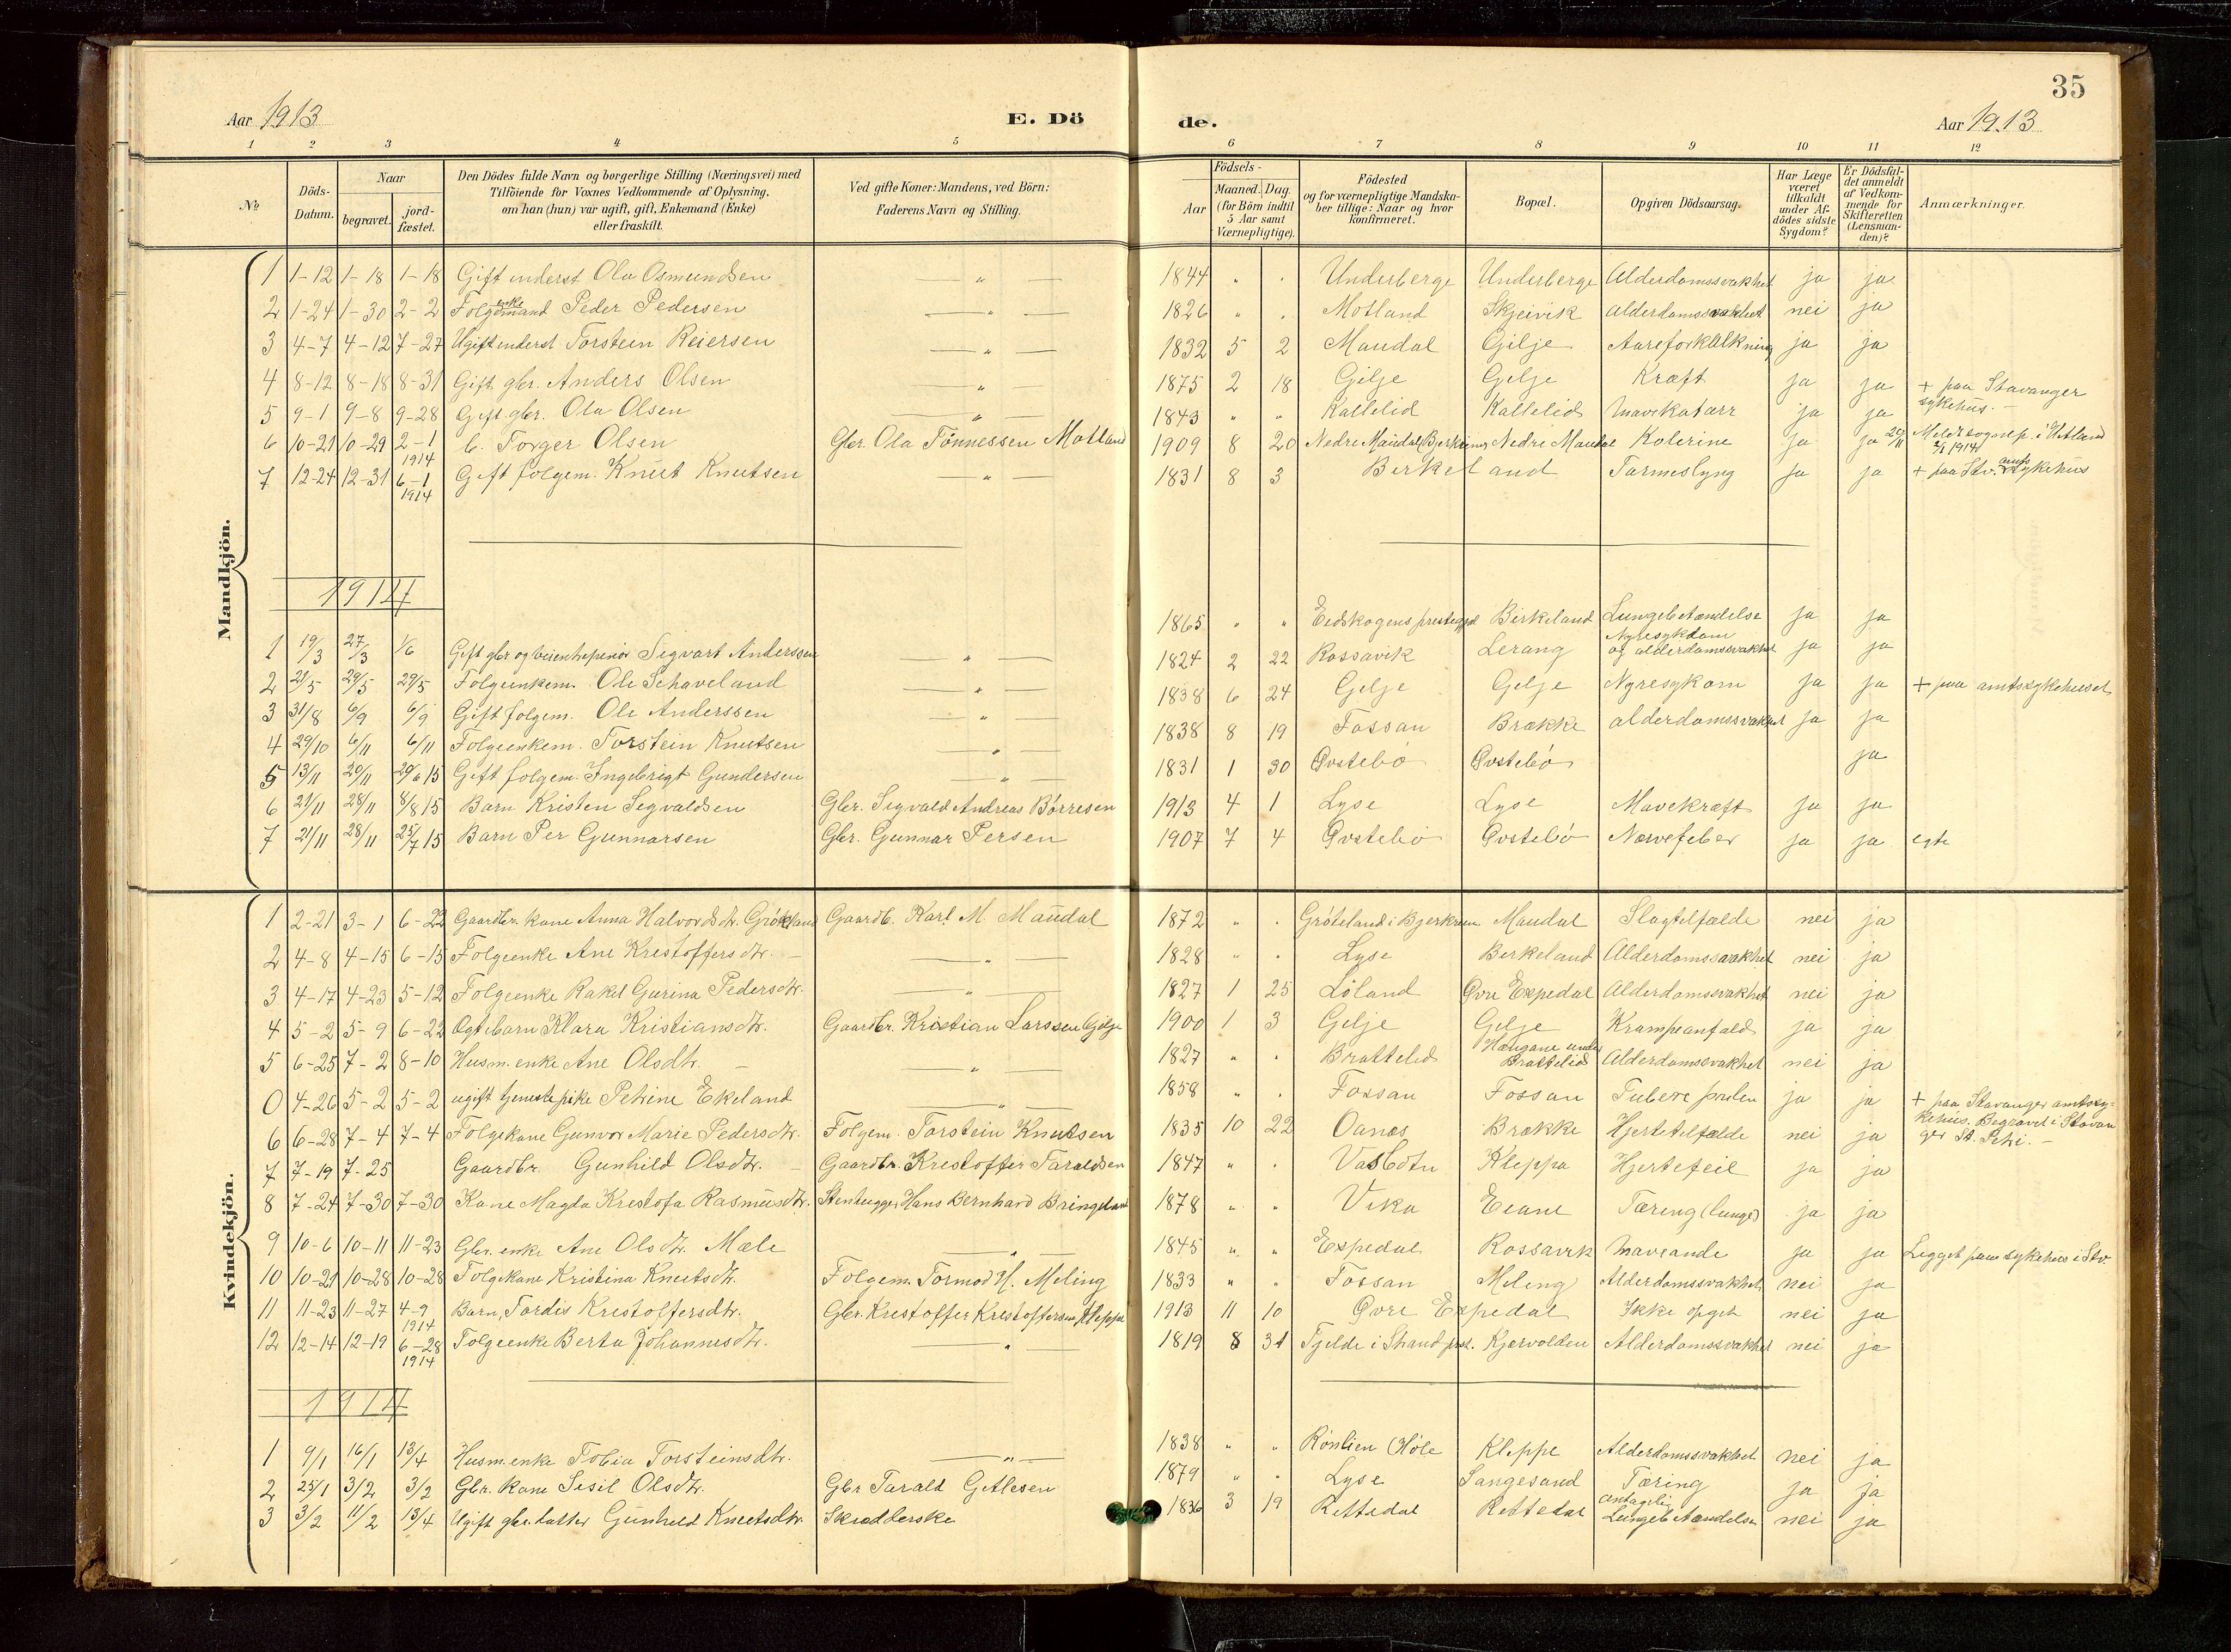 35
Aar 1913
E. Dö
de.
Aar 1913
1 2 3 4 5 6 7 8 9 10 11 12
No
Döds-Datum.
Naar
begravet.
jord-fæstet.
Den Dödes fulde Navn og borgerlige Stilling (Næringsvei) med
Tilföiende for Voxnes Vedkommende af Oplysning,
om han (hun) var ugift, gift, Enkemand (Enke)
eller fraskilt.
Ved gifte Koner: Mandens, ved Börn:
Faderens Navn og Stilling.
Födsels-
Aar
Maaned. Dag.
(for Börn indtil
5 Aar samt
Værnepligtige).
Födested
og for værnepligtige Mandska-
ber tillige: Naar og hvor
konfirmeret.
Bopæl.
Opgiven Dödsaarsag.
Har Læge
været
tilkaldt
under Af-
dödes sidste
Sygdom?
Er Dödsfal-
det anmeldt
af Vedkom-
mende for
Skifteretten
(Lensman-
den)?
Anmærkninger.
Mandkjön.
1 1-12 1-18 1-18 Gift inderst Ola Osmundsen — " — 1844 " " Underberge Underberge Alderdomssvakhet ja ja
2 1-24 1-30 2-2 Folgeenkemand Peder Pedersen — " — 1826 " " Motland Skjeivik alderdomssvakhet nei ja
3 4-7 4-12 7-27 Ugift inderst Torstein Reiersen — " — 1832 5 2 Maudal Gilje Aareforkalkning ja ja
4 8-12 8-18 8-31 Gift gbr. Anders Olsen — " — 1875 2 18 Gilje Gilje Kræft ja ja + paa Stavanger sykehus. -
5 9-1 9-8 9-28 Gift gbr. Ola Olsen — " — 1843 " " Kallelid Kallelid Mavekatarr ja ja
6 10-21 10-29 2-1 1914 b. Torger Olsen Gbr. Ola Tönnessen Motland 1909 8 20 Nedre Maudal Bjerkreim Nedre Maudal Kolerine ja ja 20/11 Meldt sognep. i Hetland 2/1 1914
7 12-24 12-31 6-1 1914 Gift folgem. Knut Knutsen — " — 1831 8 3 Birkeland Tarmslyng ja ja + paa Stv. amts sykehus
1914
1 19/3 27/3 1/6 Gift gbr og veiinspektør Sigvart Anderssen — " — 1865 " " Eidskogens prestegjeld Birkeland Lungebetændelse ja ja
2 21/5 29/5 29/5 Folgeenkem. Ole Schaveland — " — 1824 2 22 Rossavik Lerang Nyresykdom og alderdomssvakhet ja ja
3 31/8 6/9 6/9 Gift folgem. Ole Anderssen — " — 1838 6 24 Gilje Gilje Nyresykom ja ja + paa amtssykehuset
4 29/10 6/11 6/11 Folgeenkem. Torstein Knutsen — " — 1838 8 19 Fossan Brække alderdomssvakhet ja ja
5 13/11 20/11 20/6 15 Gift folgem. Ingebrigt Gundersen — " — 1831 1 30 Øvstebö Øvstebö ja
6 21/11 28/11 8/8 15 Barn Kristen Sigvaldsen Gbr. Sigvald Andreas Börresen 1913 4 1 Lyse Lyse Mavekræft ja ja
7 21/11 28/11 25/7 15 Barn Per Gunnarsen Gbr. Gunnar Persen 1907 7 4 Øvstebö Øvstebö Nervefeber ja ja egte
Kvindekjön.
1 2-21 3-1 6-22 Gaardbr. kone Anna Halvordsdtr. Gröteland Gaardb. Karl M Maudal 1872 " " Gröteland i Bjerkreim Maudal Slagtilfælde nei ja
2 4-8 4-15 6-15 Folgeenke Ane Kristoffersdtr. — " — 1828 " " Lyse Birkeland Alderdomssvakhet nei ja
3 4-17 4-23 5-12 Folgeenke Rakel Gurina Pedersdtr. — " — 1827 1 25 Löland Øvre Espedal Alderdomssvakhet nei ja
4 5-2 5-9 6-22 Ægtebarn Klara Kristiansdtr. Gaardbr. Kristian Larssen Gilje 1900 1 3 Gilje Gilje Krampeanfald ja ja
5 6-25 7-2 8-10 Husm. enke Ane Olsdtr. — " — 1827 " " Brattelid Haugane under Brattelid Alderdomssvakhet nei ja
0 4-26 5-2 5-2 ugift tjenestepike Petrine Ekeland — " — 1858 " " Fossan Fossan Tuberc. pulm ja ja + paa Stavanger amtssy-kehus. Begravet i Stavanger St. Petri. -
6 6-28 7-4 7-4 Folgekone Gunvor Marie Pedersdtr. Folgem. Torstein Knutsen 1835 10 22 Oanæs Brække Hjertetilfælde nei ja
7 7-19 7-25 Gaardbr. Gunhild Olsdtr. - Gaardbr. Kristoffer Taraldsen 1847 " " Vasbotn Kleppa Hjertefeil ja ja
8 7-24 7-30 7-30 Kone Magda Kristofa Rasmusdtr. Stenhugger Hans Bernhard Bringeland 1878 " " Vika Eiane Tæring (lunge) ja ja
9 10-6 10-11 11-23 Gbr. enke Ane Olsdtr. Mæle — " — 1845 " " Espedal Rossavik Maveonde ja ja Ligget paa sykehus i Stv.
10 10-21 10-28 10-28 Folgekone Kristina Knutsdtr. Folgem. Tormod H. Meling 1833 " " Fossan Meling Alderdomssvakhet nei ja
11 11-23 11-27 4-9 1914 Barn, Tordis Kristoffersdtr. Gbr. Kristoffer Kristoffersen Kleppa 1913 11 10 Øvre Espedal Ikke opget nei ja
12 12-14 12-19 6-28 1914 Folgeenke Berta Johannesdtr. — " — 1819 8 31 Fjelde i Strand prst. Kjærvolden Alderdomssvakhet nei ja
1914
1 9/1 16/1 13/4 Husm. enke Tobia Torsteinsdtr. — " — 1838 " " Rönlien (Höle Kleppe Alderdomssvakhet nei ja
2 25/1 3/2 3/2 Gbr. kone Sisil Olsdtr. Gbr Tarald Gitlesen 1879 " " Lyse Sangesand Tæring ja ja
3 3/2 11/2 13/4 Ugift gbr. datter Gunhild Knutsdtr. Skrædderske 1836 3 19 Rettedal Rettedal antagelig Lungebetændelse nei ja